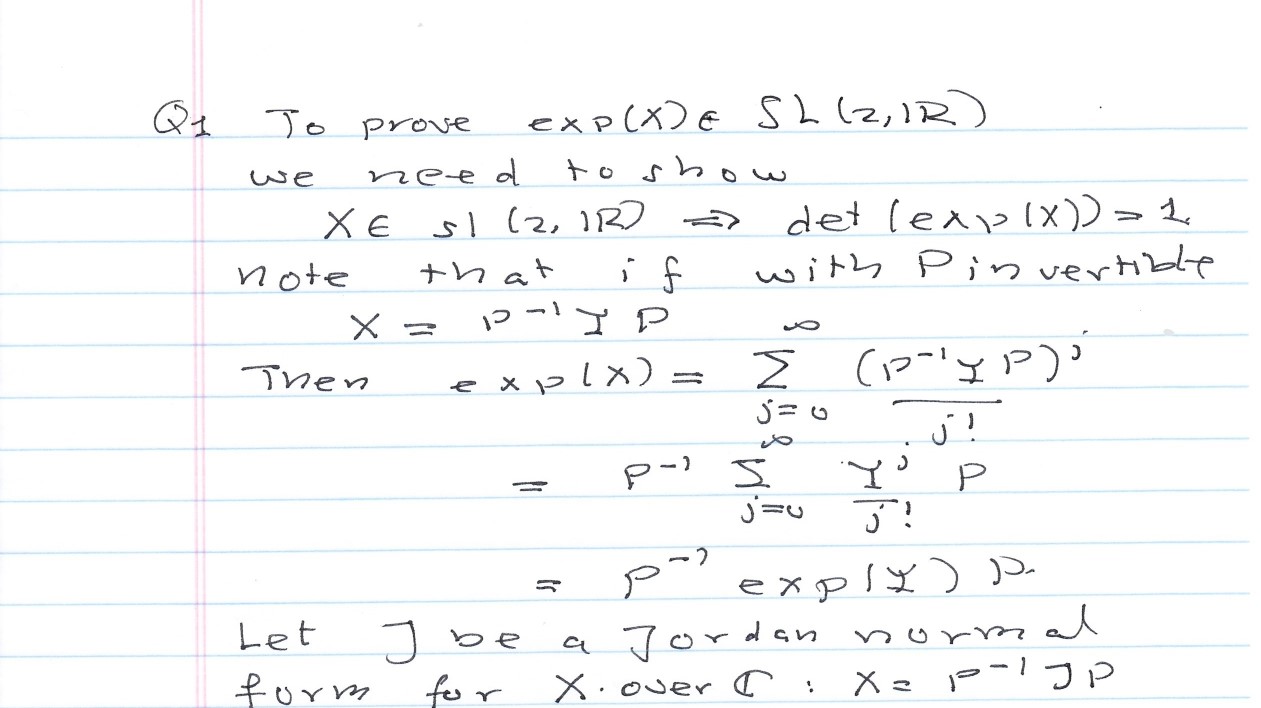 Q1 To prove exp(X) ∈ SL(2,ℝ)
we need to show
X ∈ sl(2,ℝ) ⇒ det(exp(X)) = 1
note that if with P invertible
X = P⁻¹YP
Then exp(X) = ∑_{j=0}^{∞} (P⁻¹YP)^j / j!
= P⁻¹ ∑_{j=0}^{∞} Y^j / j! P
= P⁻¹ exp(Y) P.
Let J be a Jordan normal
form for X. over ℂ : X = P⁻¹JP